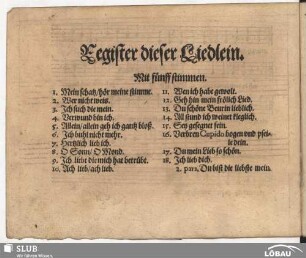 Register dieser Liedlein.
Mit fünff stimmen.
1. Mein schatz/hör meine stimme.
2. Wer nicht weis.
3. Ich such die mein.
4. Verwund bin ich.
5. Allein/allein geh ich gantz bloß.
6. Ich buhl nicht mehr.
7. Hertzlich lieb ich.
8. O Sonn/O Mond.
9. Ich liebt die mich hat betrübt.
10. Ach lieb/ach lieb.
11. Wen ich habe gewolt.
12. Geh hin mein frölich Lied.
13. Du schöne Venerin lieblich.
14. All stund ich weinet kleglich.
15. Sey gesegnet sein.
16. Verbren Cupido bogen und pfei-
le dein.
17. Du mein Lieb so schön.
18. Ich lieb dich.
2. pars. Du bist die liebste mein.
SLUB
Wir führen Wissen.
LÖBAU